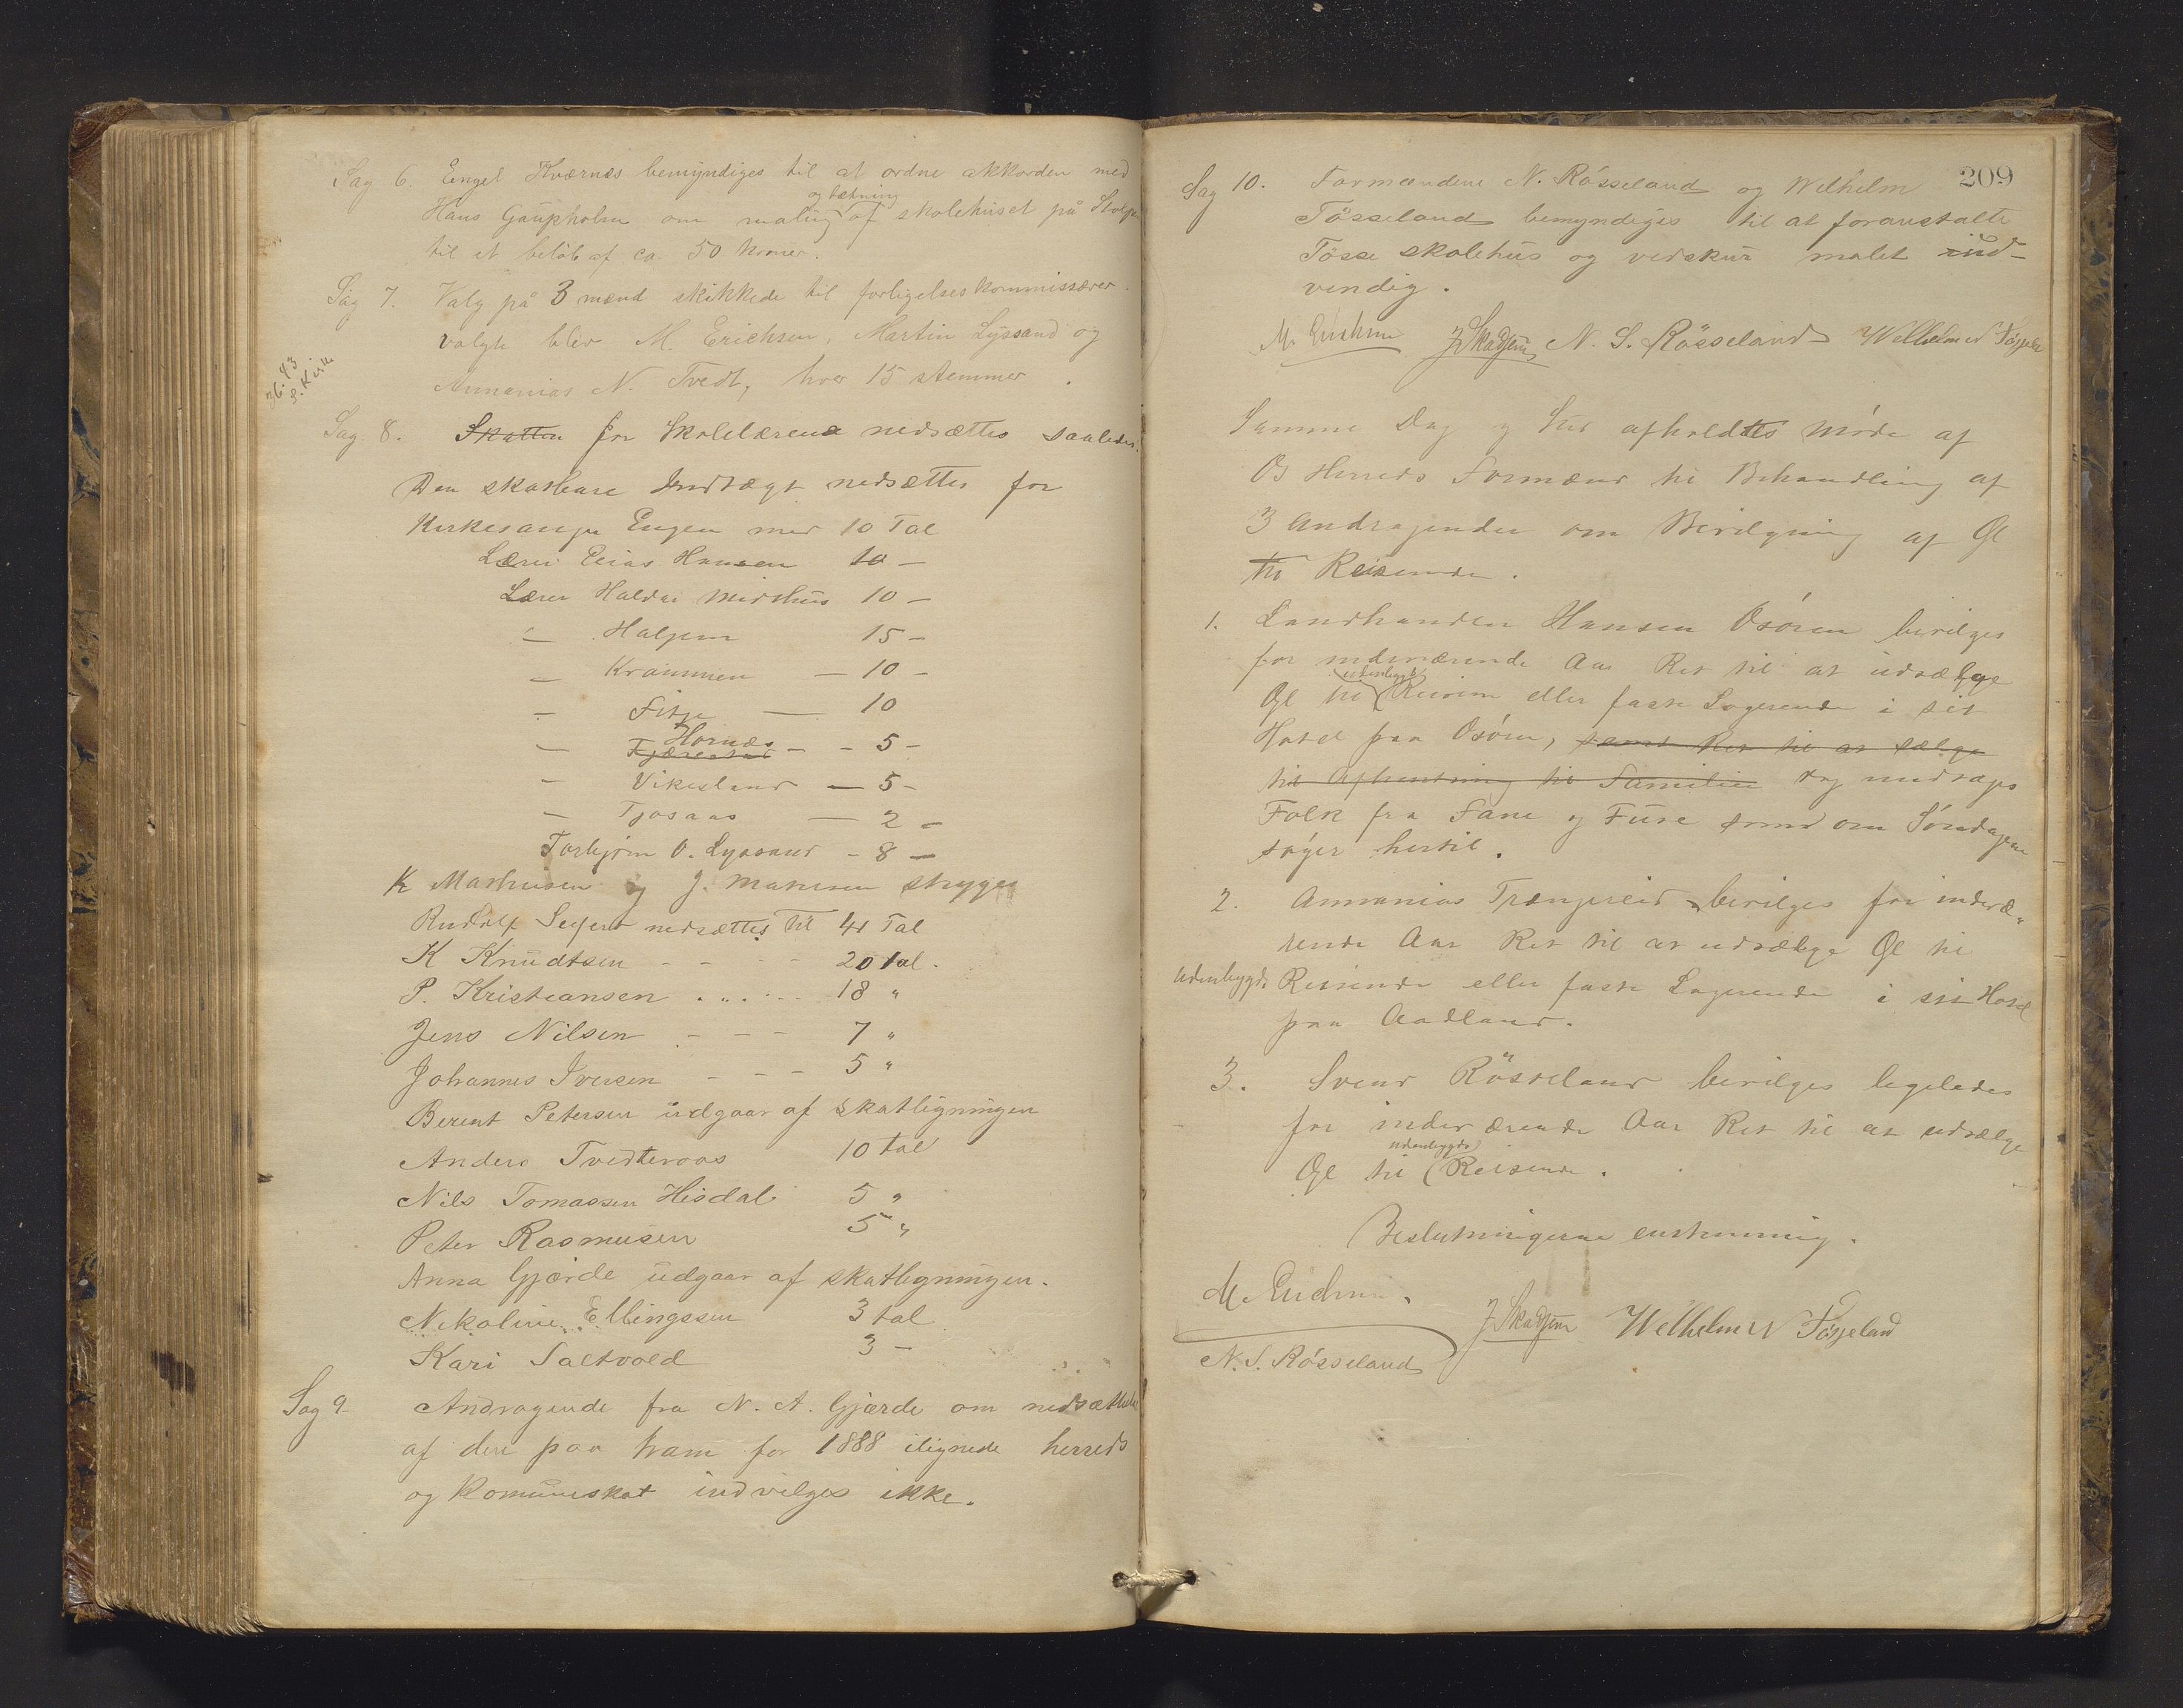 Sag 6. Engel Kværnes bemyndiges til at ordne akkorden med
og tætning
Hans Gaupholm om maling af skolehuset på
til et beløb af ca. 50 kroner.
Sag 7. Valg på 3 mænd skikkede til forligelseskommissærer.
valgte blev M. Erichsen, Martin Lyssand og
Annanias N. Tvedt, hver 15 stemmer.
Sag 8. Skatten for Skolelærene nedsættes saaledes.
Den skatbare Indtægt nedsættes for
Kirkesanger Engen med 10 Tal
Lærer Elias Hansen 10 –
Lærer Haldor Midthus 10 –
– Haljem 15 –
– 10 –
– Fitje – 10
Hornæs
– – – 5 –
– Vikesland – 5 –
– Tjosaas – 2 –
Torbjørn O. Lyssand – 8 –
K Mathiesen og J. stryges
Rudolf nedsættes til 41 Tal
K Knudtsen – – – 20 tal.
P. Kristiansen . . . . . 18 "
Jens Nilsen – – – 7 "
Johannes Iversen – – – 5 "
Berent Petersen udgaar af skatligningen
Anders Tvedteraas 10 tal
Nils Tomassen Hisdal 5 "
Peter Rasmusen 5 "
Anna Gjærde udgaar af skatligningen.
Nikoline Ellingssen 3 tal
Kari Saltvold 3 –
Sag 9 Andragende fra N. A. Gjærde om nedsættelse
af den paa ham for 1888 ilignede herreds
og Komuneskat indvilges ikke.
209
Sag 10. Formændene N. Røsseland og Wilhelm
Tøsseland bemyndiges til at foranstalte
Tøsse skolehus og vedskur malet ind-
vendig.
M. Erichsen J Skadsem N. S. Røsseland Wilhelm N Tøsseland
Samme Dag og Sted afholdtes Møde af
Os Herreds Formænd til Behandling af
3 Andragender om Bevilgning af Øl
til Reisende.
1. Landhandler Hansen Osøren bevilges
for indeværende Aar Ret til at udsælge
udenbygds
Øl til Reisende eller faste Logerende i sit
Hotel paa Osøren, samt Ret til at sælge
til Afhentning til Familier dog undtages
Folk fra Fane og Fuse som om Søndagene
søger hertil.
2. Annanias Trengereid bevilges for indevæ-
rende Aar Ret til at udsælge Øl til
udenbygds Reisende eller faste Logerende i sit Hotel
paa Aadland.
3. Svend Røsseland bevilges ligeledes
for indeværende Aar Ret til at udsælge
udenbygds
Øl til Reisende.
Beslutningerne enstemmig.
M. Erichsen. J Skadsem Wilhelm N Tøsseland
N. S. Røsseland